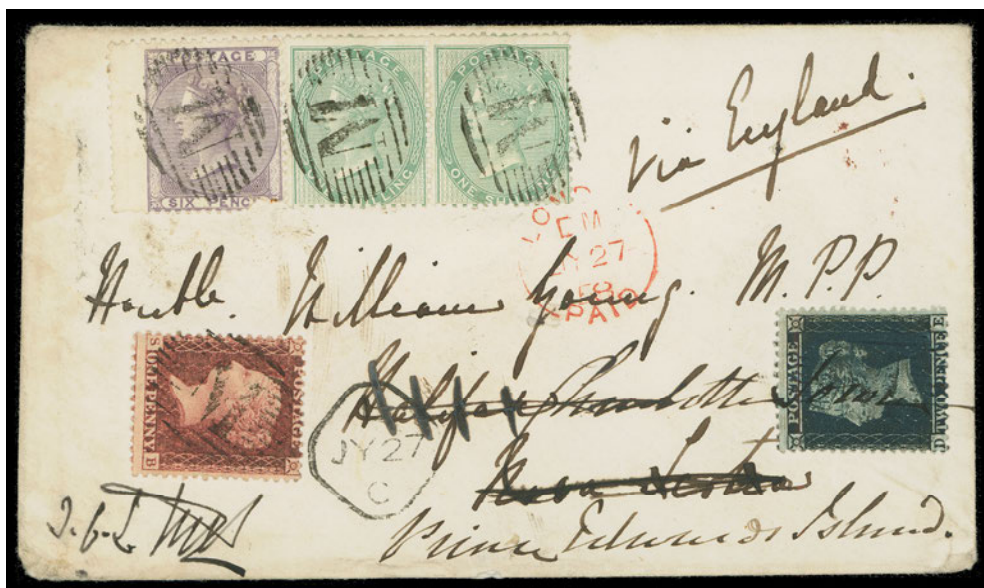 POSTAGE
SIX PENC
M
POSTAGE
LLING
M
POSTAGE
ONE S
M
via England
LON
EM
JY 27
58
PAID
Honble. William Young. M.P.P.
POSTAGE
ONE PENNY
S B
POSTAGE
TWO
E D
Halifax Charlotte Town
JY 27
C
Nova Scotia
Prince Edwards Island.